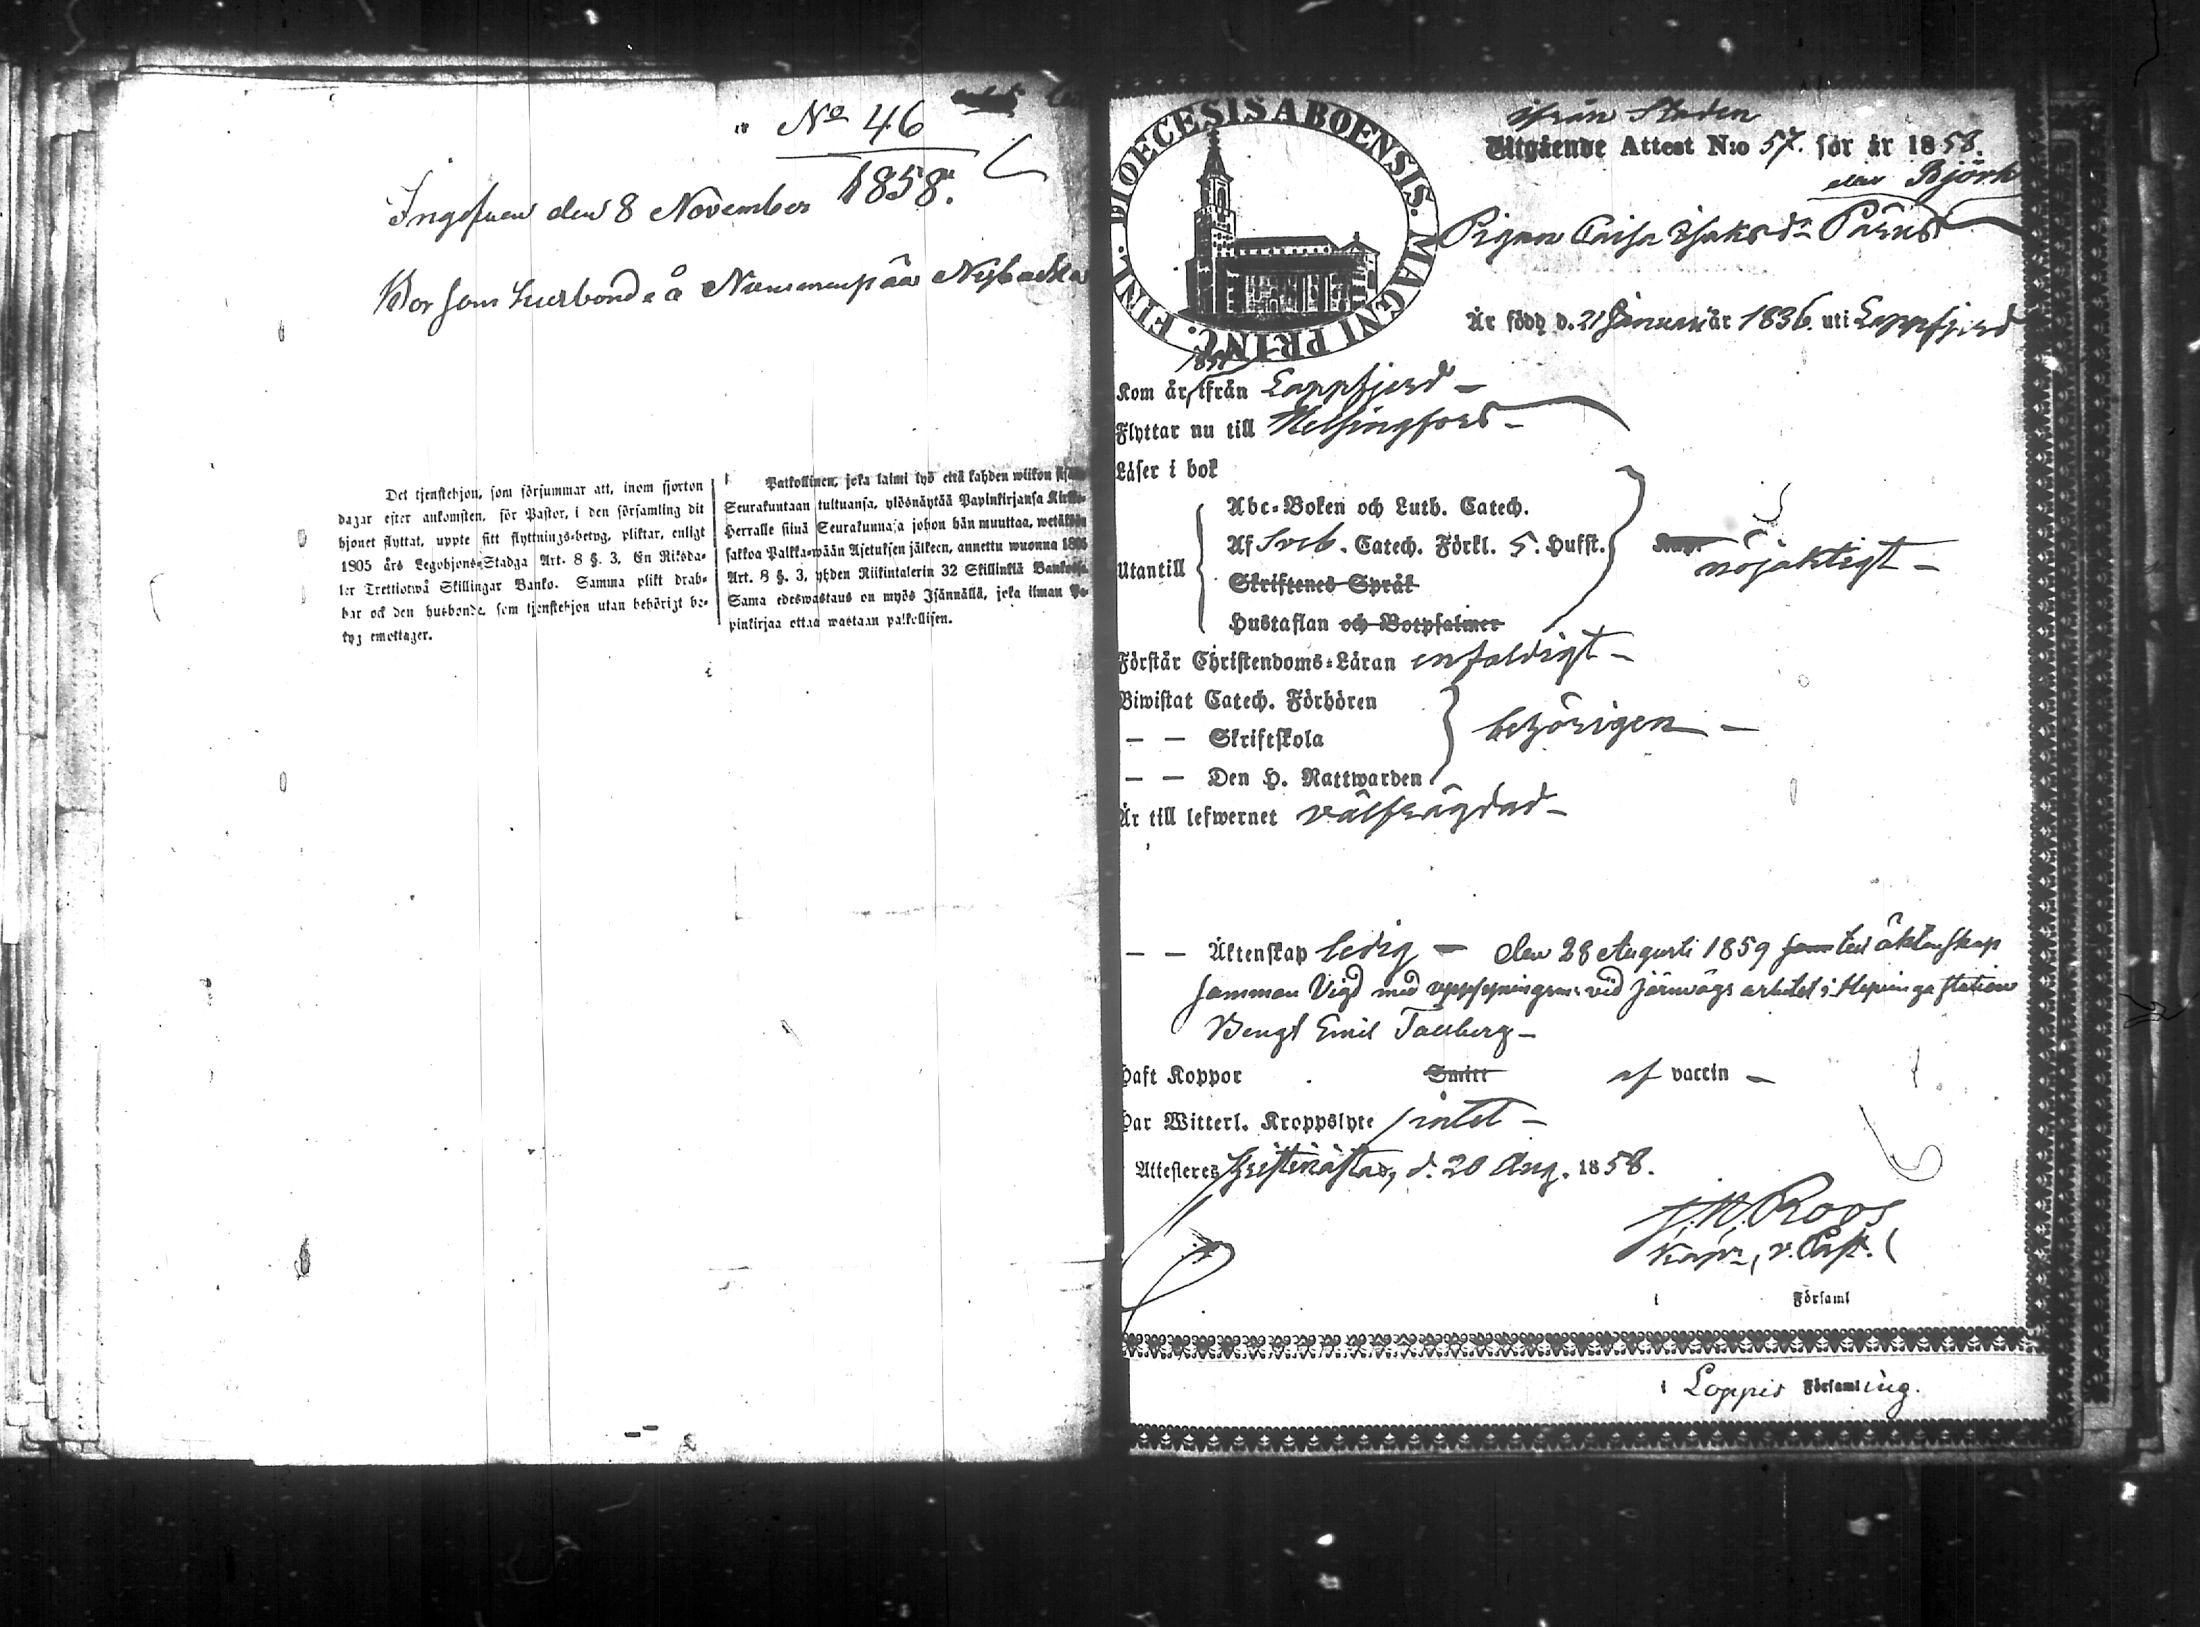 No 46
1858.
Ingifven den 8 November
Bor som husbonde å
Det tjenstehjon, som försummar att, inom fjorton
dagar efter ankomsten, för Pastor, i den församling dit
hjonet flyttat, uppte sitt flyttnings-betyg, pliktar, enligt
1805 års Legohjons-Stadga Art. 8 §. 3, En Riksda-
ler Trettiotwå Skillingar Banko. Samma plikt drab-
bar ock den husbonde, som tjenstehjon utan behörigt be-
tyg emottager.
Palkollinen, joka laimi lyö että kahden wiikon sisällä
Seurakuntaan tultuansa, ylösnäytää Papinkirjansa Kirkko-
Herralle siinä Seurakunnasa johon hän muuttaa, wetäköön
sakkoa Palkka-wään Asetuksen jälkeen, annettu wuonna 1805
Art. 8 §. 3, yhden Riikintalerin 32 Skillinkiä Bankosa.
Sama edeswastaus on myös Isännällä, joka ilman Pa-
pinkirjaa ottaa wastaan palkollisen.
FINL. DIOECESIS ABOENSIS. MAGNI PRINC.
ifrån Staden
Utgående Attest N:o 57. för år 1858.
eller Björk
Pigan Caisa Isaksdr
Är född d. 21 Januari år 1836. uti Lappfjerd
Kom år ifrån Lappfjerd –
Flyttar nu till Helsingfors –
Läser i bok
Abc-Boken och Luth. Catech.
Utantill
Af Sveb. Catech. Förkl. 5. Hufst.
nöjaktigt –
Skriftenes Språk
Hustaflan och Botpsalmer
Förstår Christendoms-Läran enfaldigt –
Biwistat Catech. Förhören
— — Skriftskola
behörigen –
— — Den H. Nattwarden
Är till lefwernet välfrägdad –
— — Äktenskap ledig – den 28 Augusti 1859 till äktenskap
samman Vigd med uppsyningsm. ved järnvägs arbetet i station
Bengt Emil Tallberg –
Haft Koppor . Smitt af vaccin –
Har Witterl. Kroppslyte intet –
Attesteres Kristinestad, d. 20 Aug. 1858.
J. W. Roos
Kapn, v. Past.
i Församl
i Loppis Församling.